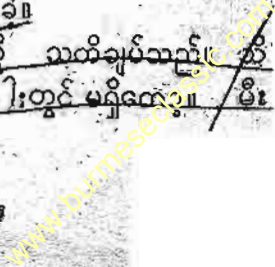 ခဲ့။
သတိချပ်သည်။ သို
ါးတွင် မရှိတော့။ မီး
www.burmeseclassic.com